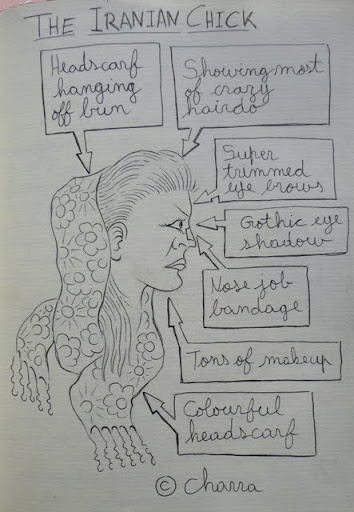 THE IRANIAN CHICK
Headscarf
hanging
off bun
Showing most
of crazy
hairdo
Super
trimmed
eye brows
Gothic eye
shadow
Nose job
bandage
Tons of makeup
Colourful
headscarf
© Charra